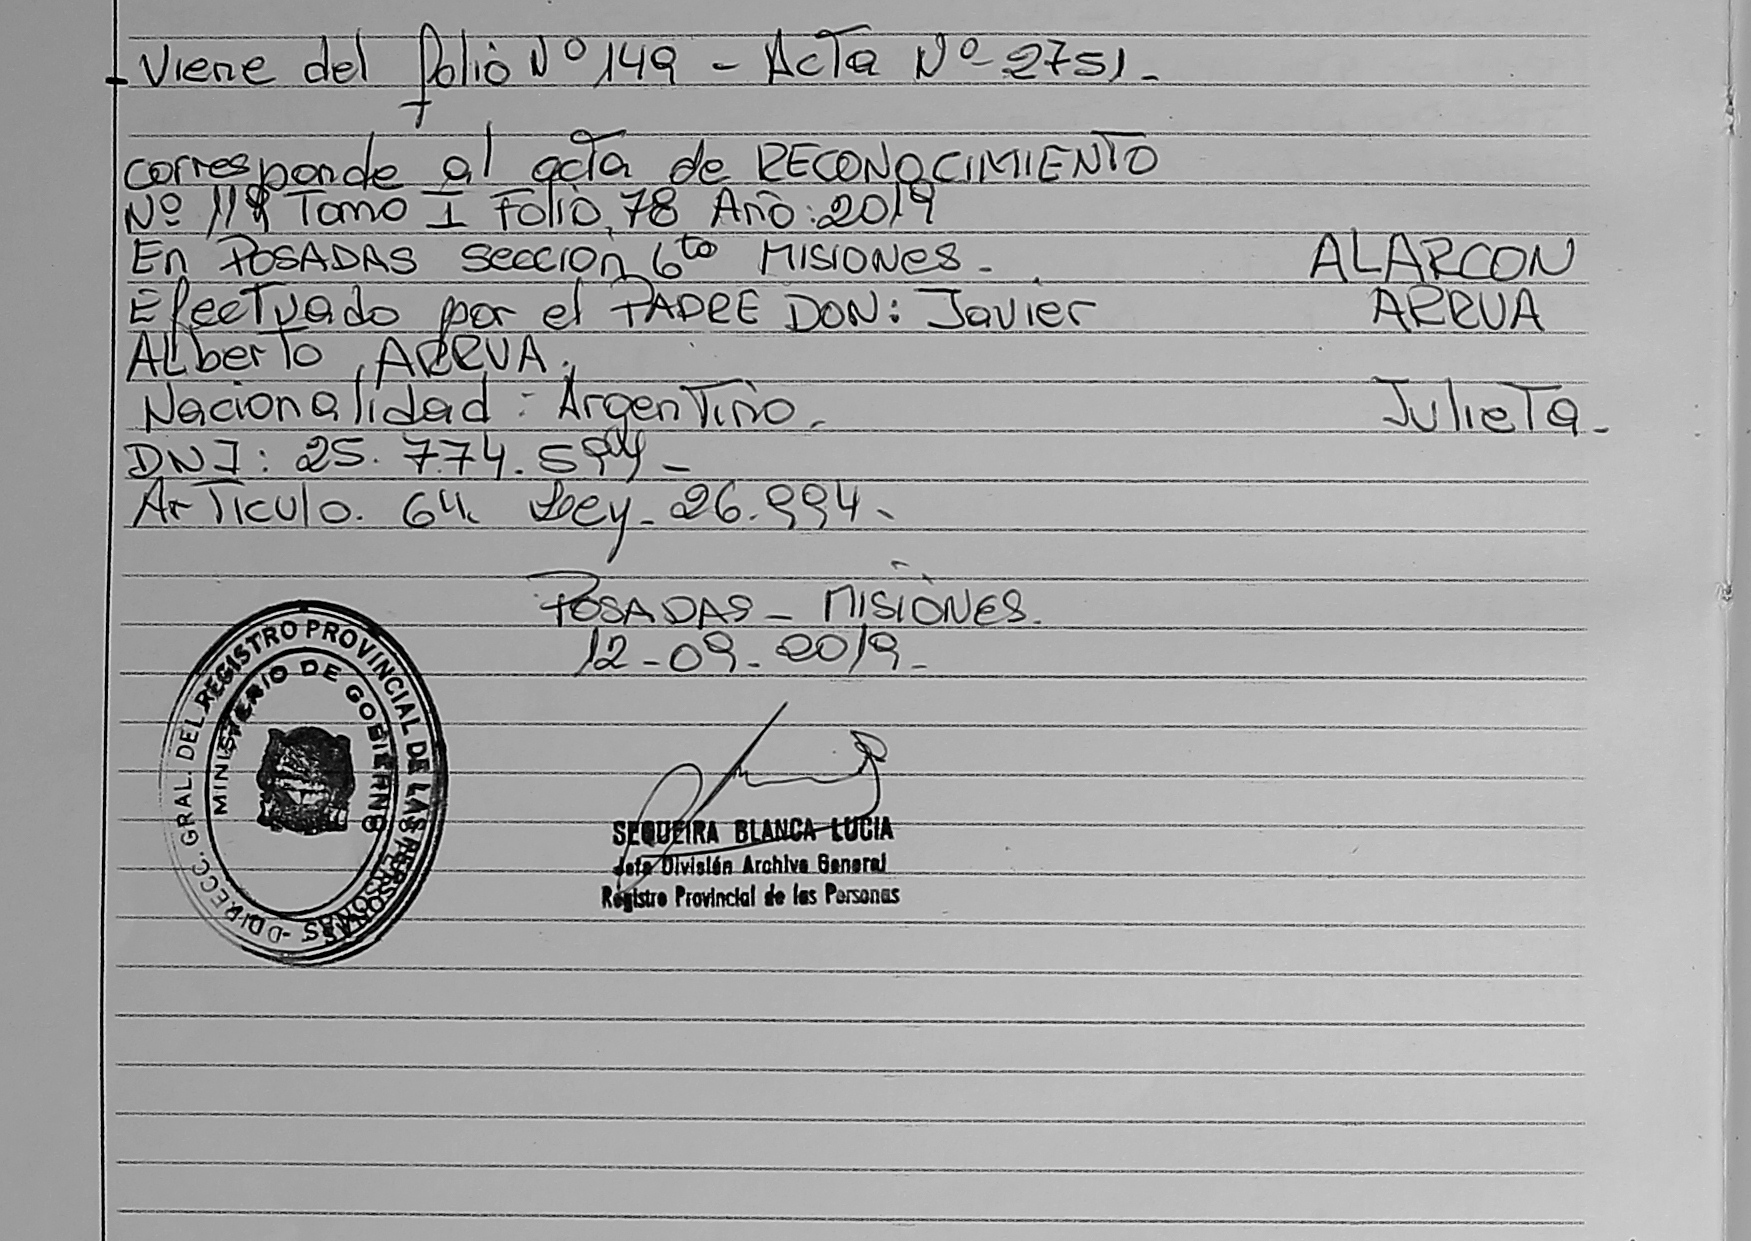 Viene del folio Nº 149 - Acta Nº 2751.-
corresponde al acta de RECONOCIMIENTO
Nº Tomo I Folio, 78 Año: 2019
En POSADAS sección 6ta MISIONES.-
Efectuado por el PADRE DON: Javier
Alberto, ARRUA.
Nacionalidad: Argentino.-
DNI: 25.774.
Artículo. 64. Ley- 26.994.-
ALARCON
ARRUA
Julieta.-
POSADAS - MISIONES.
12-09-2019.-
DIRECC. GRAL. DEL REGISTRO PROVINCIAL DE LAS PERSONAS -
MINISTERIO DE GOBIERNO
SEQUEIRA BLANCA LUCIA
Jefe División Archivo General
Registro Provincial de las Personas